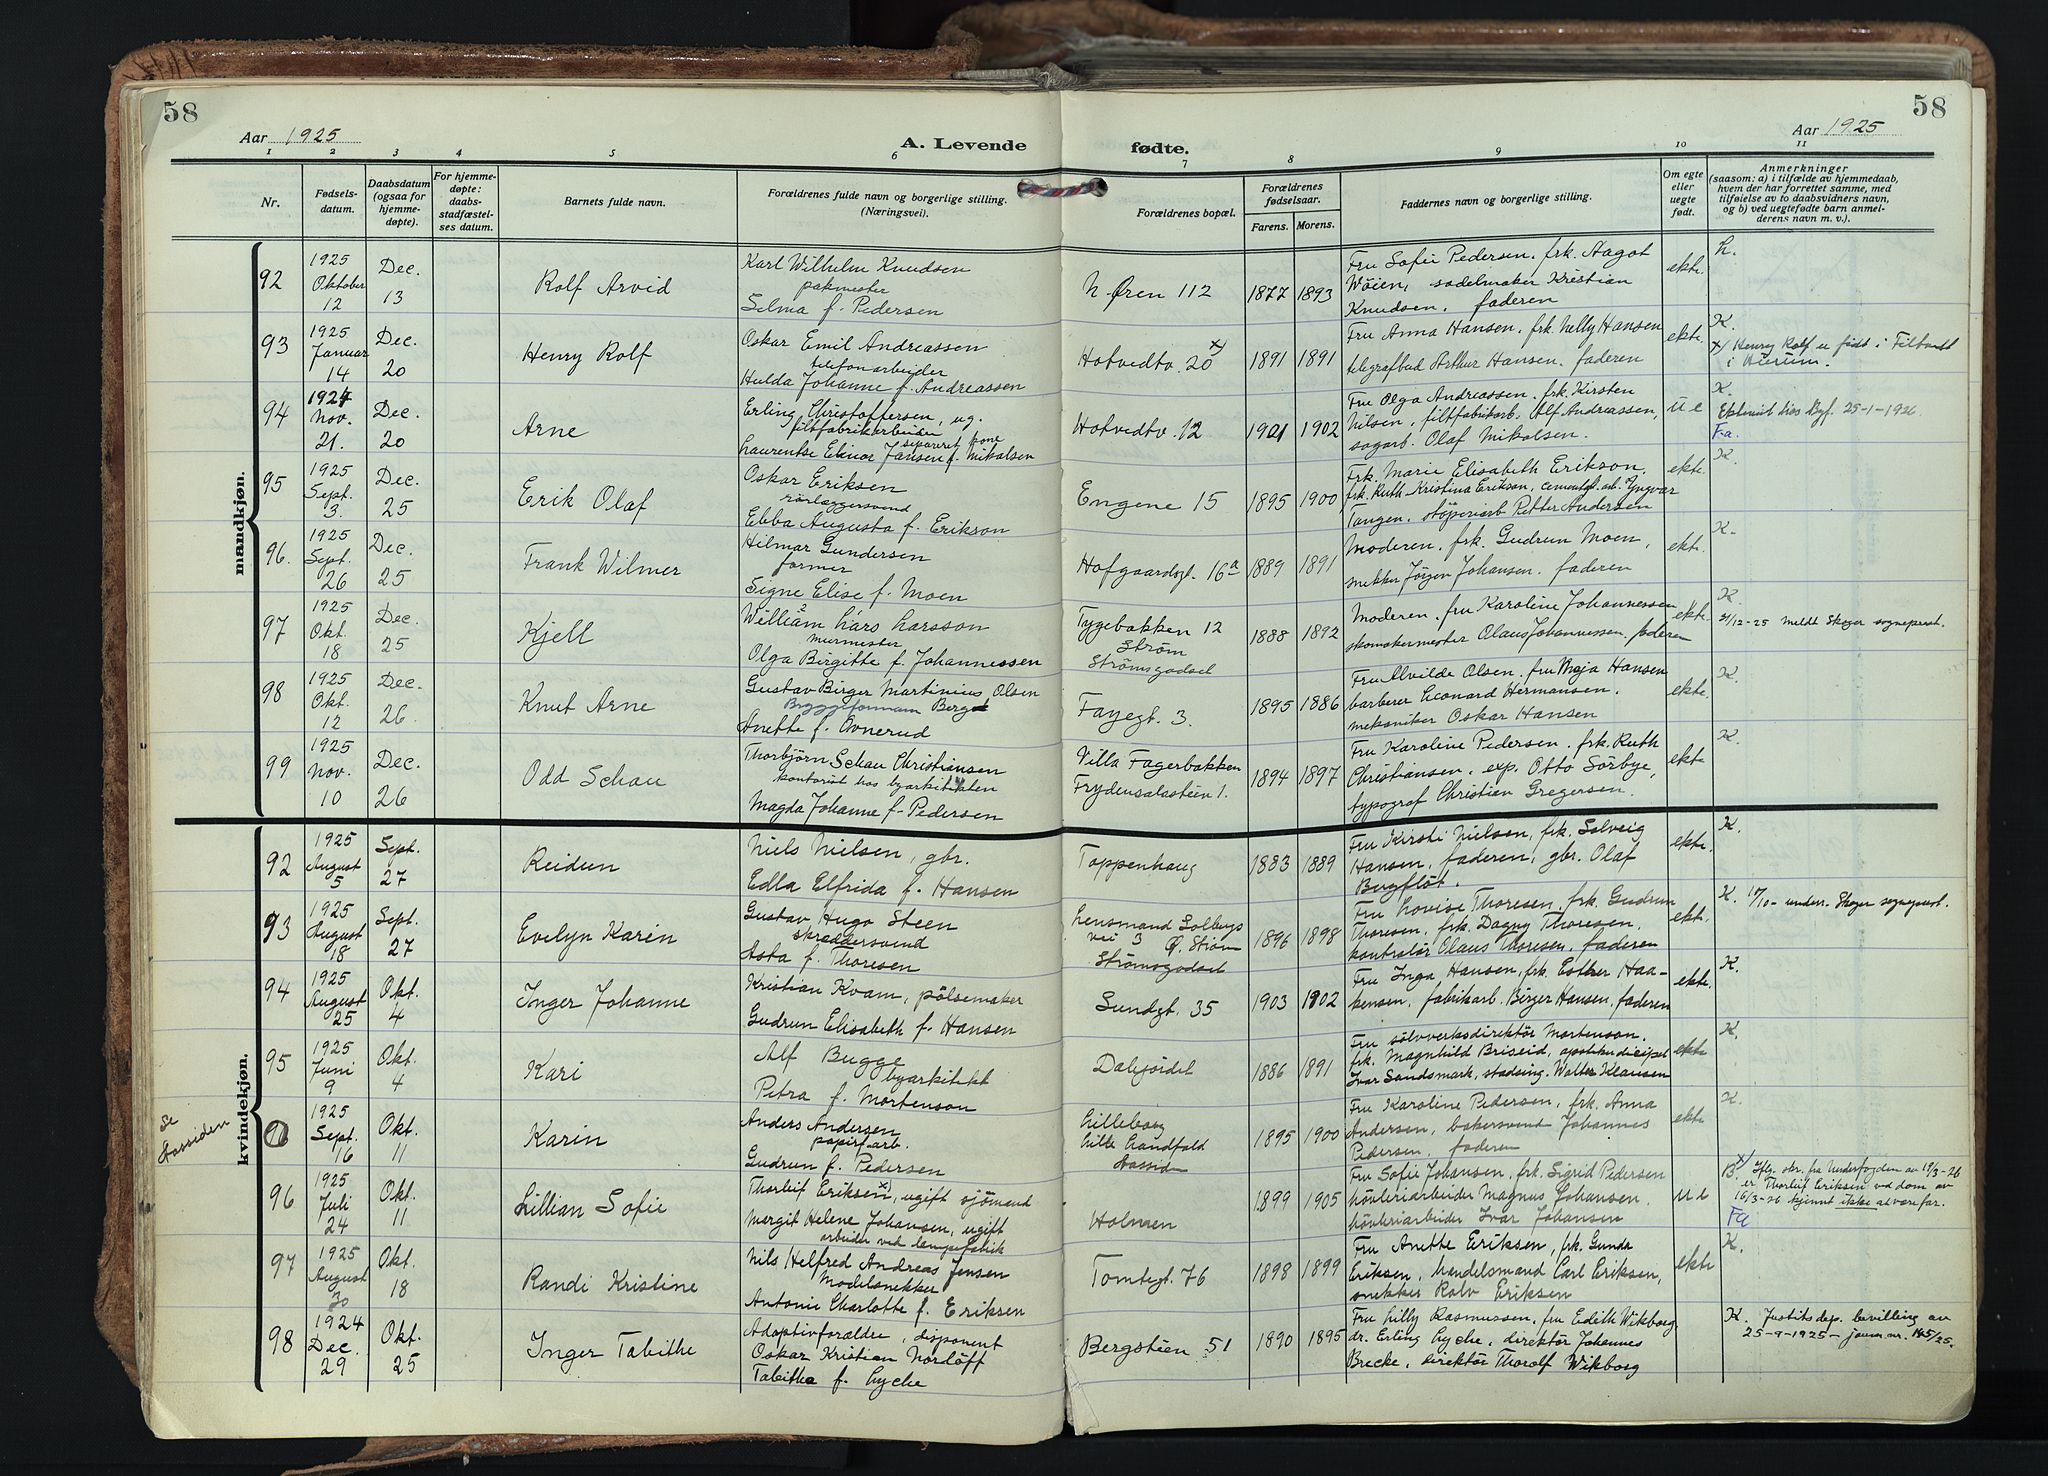 58
58
Aar 1925
A. Levende
fødte.
Aar 1925
1 2 3 4 5 6 7 8 9 10 11
Nr.
Fødsels-
datum.
Daabsdatum
(ogsaa for
hjemme-
døpte).
For hjemme-
døpte:
daabs-
stadfæstel-
ses datum.
Barnets fulde navn.
Forældrenes fulde navn og borgerlige stilling.
(Næringsvei).
Forældrenes bopæl.
Forældrenes
fødselsaar.
Farens. Morens.
Faddernes navn og borgerlige stilling.
Om egte
eller
uegte
født.
Anmerkninger
(saasom: a) i tilfælde av hjemmedaab,
hvem der har forrettet samme, med
tilføielse av to daabsvidners navn,
og b) ved uegtefødte barn anmel-
derens navn m. v.).
mandkjøn.
92
1925
Oktober
12
Dec.
13
Rolf Arvid
Karl Wilhelm Knudsen
pakmester
Selma f. Pedersen
N. Øren 112
1877 1893
Fru Sofie Pedersen, frk. Aagot
Wøien, sadelmaker Kristian
Knudsen, faderen
ekte.
h.
93
1925
Januar
14
Dec.
20
Henry Rolf
Oskar Emil Andreassen
telefonarbeider
Hulda Johanne f. Andreassen
Hotvedtv. 20 x)
1891 1891
Fru Anna Hansen, frk. Nelly Hansen
telegrafbud Arthur Hansen, faderen
ekte.
K.
x) Henry Rolf er født i
94
1924
Nov.
21.
Dec.
20
Arne
Erling Christoffersen, ug.
filtfabrikarbeider
separert kone
Laurentse Elinor Jansen f. Mikalsen
Hotvedtv. 12
1901 1902
Fru Olga Andreassen, frk. Kirsten
Nilsen, filtfabrikarb. Alf Andreassen,
sagarb. Olaf Mikalsen.
u e
K.
25-1-1926
Fa.
95
1925
Sept.
3
Dec.
25
Erik Olaf
Oskar Eriksen
rørlæggersvend
Ebba Augusta f. Erikson
Engene 15
1895 1900
Frk. Marie Elisabeth Erikson,
frk. Ruth Kristina Erikson, cementgl. arb. Yngvar
Tangen, støperiarb Petter Andersen
ekte.
K.
96.
1925
Sept.
26
Dec.
25
Frank Wilmer
Hilmar Gundersen
former
Signe Elise f. Moen
Hofgaardsgt. 16a
1889 1891
Moderen, frk. Gudrun Moen,
snekker Jørgen Johansen, faderen
ekte.
K.
97
1925
Okt.
18
Dec.
25
Kjell
William Lars Larsson
murmester
Olga Birgitte f. Johannessen
Tygebakken 12
Strøm
Strømsgodset
1888 1892
Moderen, fru Karoline Johannessen
skomakermester Olaus Johannessen, faderen
ekte.
K.
31/12-25 meldt Skoger sogneprest.
98
1925
Okt.
12
Dec.
26
Knut Arne
Gustav Birger Martinius Olsen
Bryggeformann Berget
Anette f. Ovnerud
Fayegt. 3.
1895 1886
Fru Alvilde Olsen, fru Maja Hansen
barberer Leonard Hermansen.
mekaniker Oskar Hansen
ekte.
K.
99
1925
Nov.
10
Dec.
26
Odd Schau
Thorbjørn Schau Christiansen
kontorist hos byarkitekten
Magda Johanne f. Pedersen
Villa Fagerbakken
Frydensalsstein 1.
1894 1897
Fru Karoline Pedersen, frk. Ruth
Christiansen, exp. Otto Sørbye,
typograf Christian Gregersen.
ekte
K.
kvindekjøn.
92
1925
August
5
Sept.
27
Reidun
Niels Nielsen, gbr.
Edla Elfrida f. Hansen
Toppenhaug
1883 1889
Fru Kirsti Nielsen, frk. Solveig
Hansen, faderen, gbr. Olaf
Bugfløt.
ekte.
K.
93
1925
August
18
Sept.
27
Evelyn Karin
Gustav Hugo Steen
skræddersvend
Asta f. Thoresen
Lensmand Solbergs
vei 3 Ø. Strøm
Strømsgodset
1896 1898
Fru Lovise Thoresen, frk. Gudrun
Thoresen, frk. Dagny Thoresen,
kontrolør Claus Thoresen, faderen
ekte.
K. 17/10- underr. Skoger sogneprest.
94
1925
August
25
Okt.
4
Inger Johanne
Kristian Kvam, pølsemaker
Gudrun Elisabeth f. Hansen
Sundgt. 35
1903 1902
Fru Inga Hansen, frk. Esther Haa-
kensen, fabrikarb. Birger Hansen, faderen
ekte.
K.
95
1925
Juni
9
Okt.
4
Kari
Alf Bugge
byarkitekt
Petra f. Mortenson
Dalefjordet
1886 1891
Fru sølvverksdirektør Mortenson.
frk. Magnhild Briseid, apotekerdiscipel
Ivar Sandsmark, stadsing. Walter Klausen
ekte
K.
Se
Aassiden
1925
Sept.
16
Okt.
11
Karin
Anders Andersen
papirf. arb.
Gudrun f. Pedersen
Lilleborg
Lille Landfald
Aassiden
1895 1900
Fru Karoline Pedersen, frk. Anna
Andersen, bakersvend Johannes
Pedersen, faderen
ekte
K.
96
1925
Juli
24
Okt.
11
Lillian Sofie
Thorleif Eriksen x), ugift sjømand
Margit Helene Johansen, ugift
arbeider ved lampefabrik
Holmen
1899 1905
Fru Sofie Johansen, frk. Sigrid Pedersen
høvleriarbeider Magnus Johansen,
høvleriarbeider Ivar Johansen
u e
B x) Iflg. skr. fra Underfogden av 19/3-26
er Thorleif Eriksen ved dom av
16/3-26 kjennt ikke at være far.
Fa
97
1925
August
30
Okt.
18
Randi Kristine
Nils Helfred Andreas Jensen
Modelsnekker
Antonie Charlotte f. Eriksen
Tomtegt. 76
1898 1899
Fru Anette Eriksen, frk. Gunda
Eriksen, handelsmand Carl Eriksen,
snekker Rolv Eriksen
ekte
K.
98
1924
Dec.
29
Okt.
25
Inger Tabithe
Adoptivforældre, disponent
Oskar Kristian Nordløff
Tabitha f. Lyche
Bergstien 51
1890 1895
Fru Lilly Rasmussen, fru Edith Wikborg
dr. Erling Lyche, direktør Johannes
Brecke, direktør Thorolf Wikborg
K. Justitsdep. bevilling av
25-9-1925 - journ. nr. 1465/25.